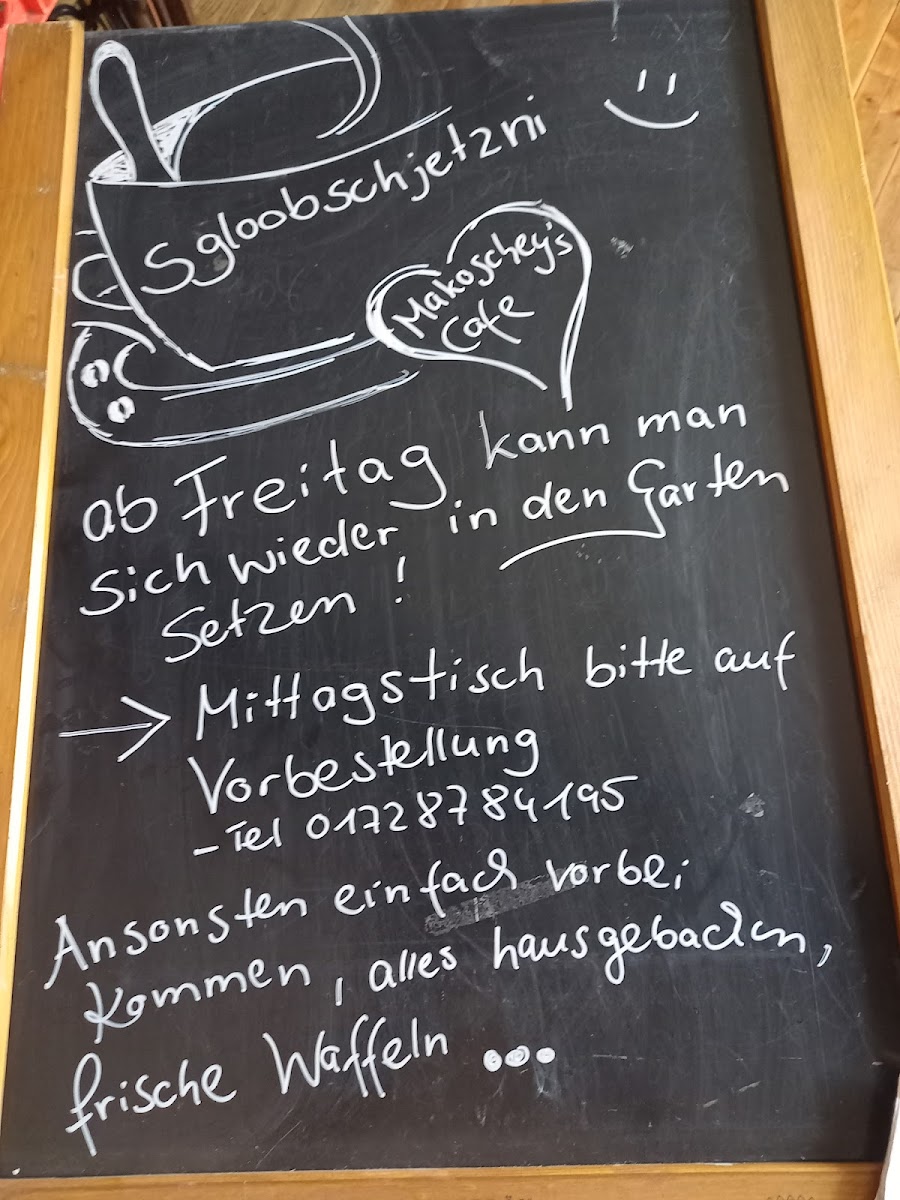 Sgloobschjetzni
Makoschey's
Cafe
ab Freitag kann man
sich wieder in den Garten
setzen !
→ Mittagstisch bitte auf
Vorbestellung
- Tel 01728784195
Ansonsten einfach vorbei
kommen, alles hausgebacken,
frische Waffeln ...